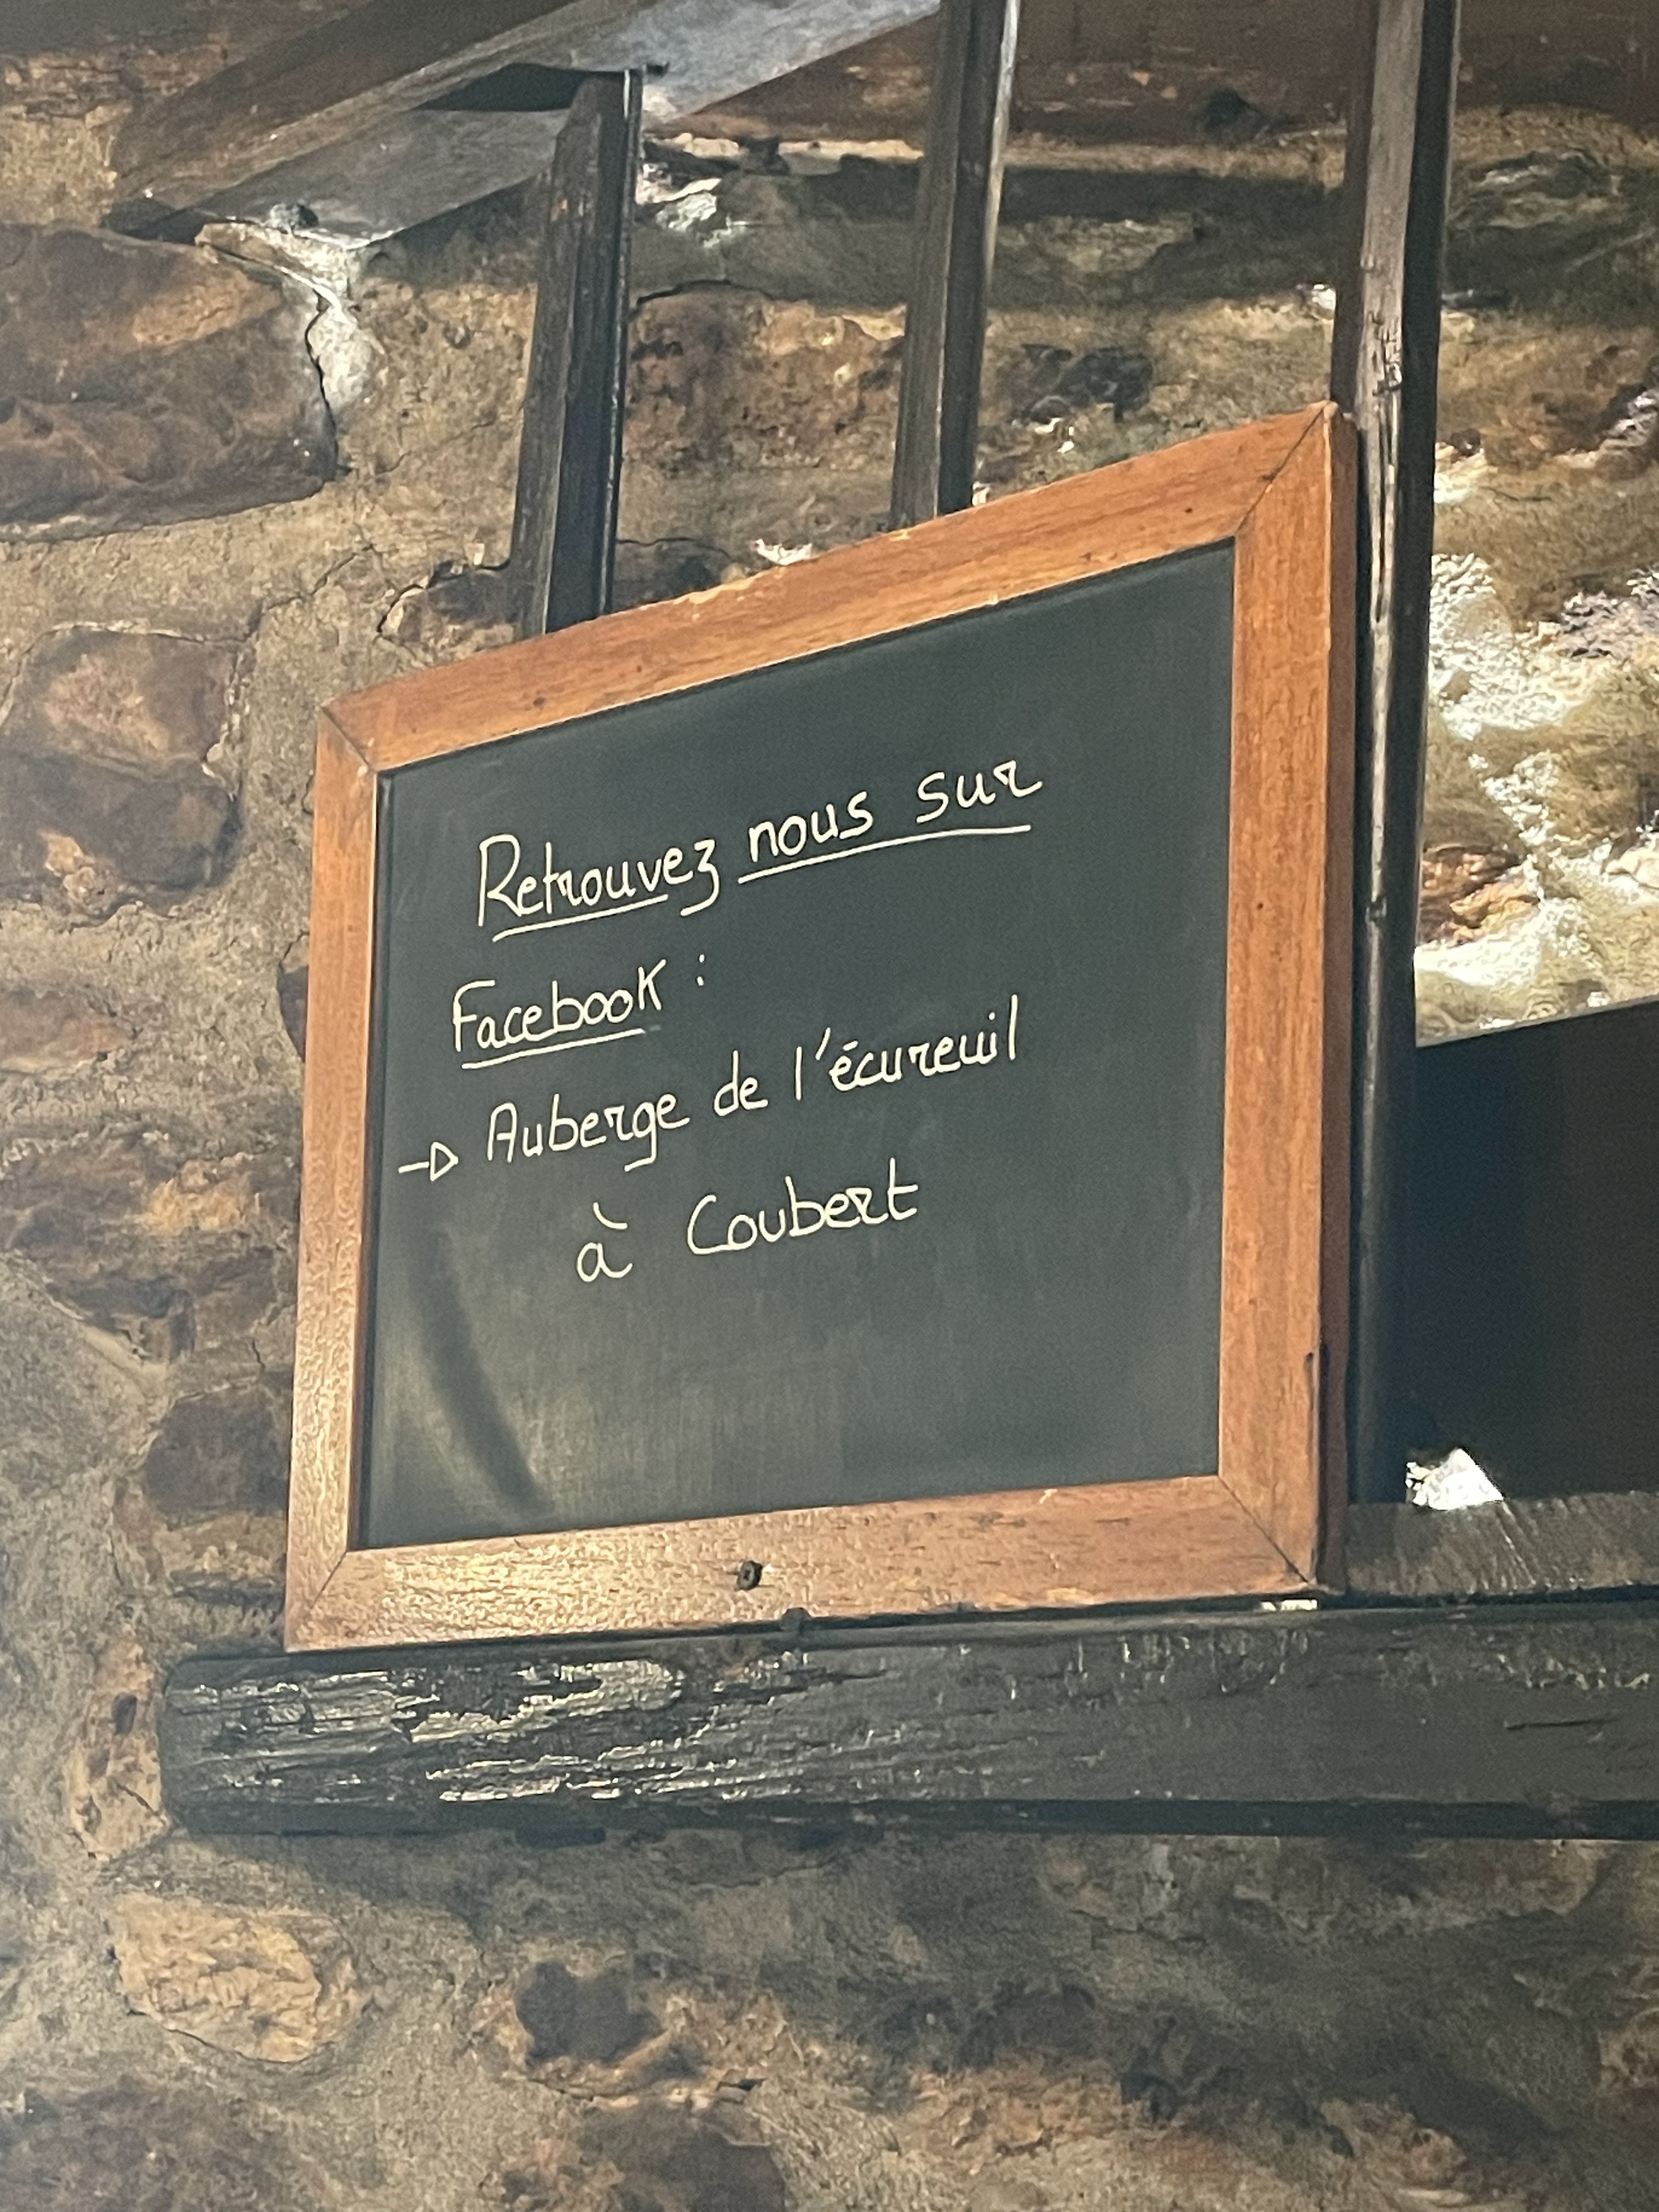 Retrouvez nous sur
Facebook :
→ Auberge de l'écureuil
à Coubert